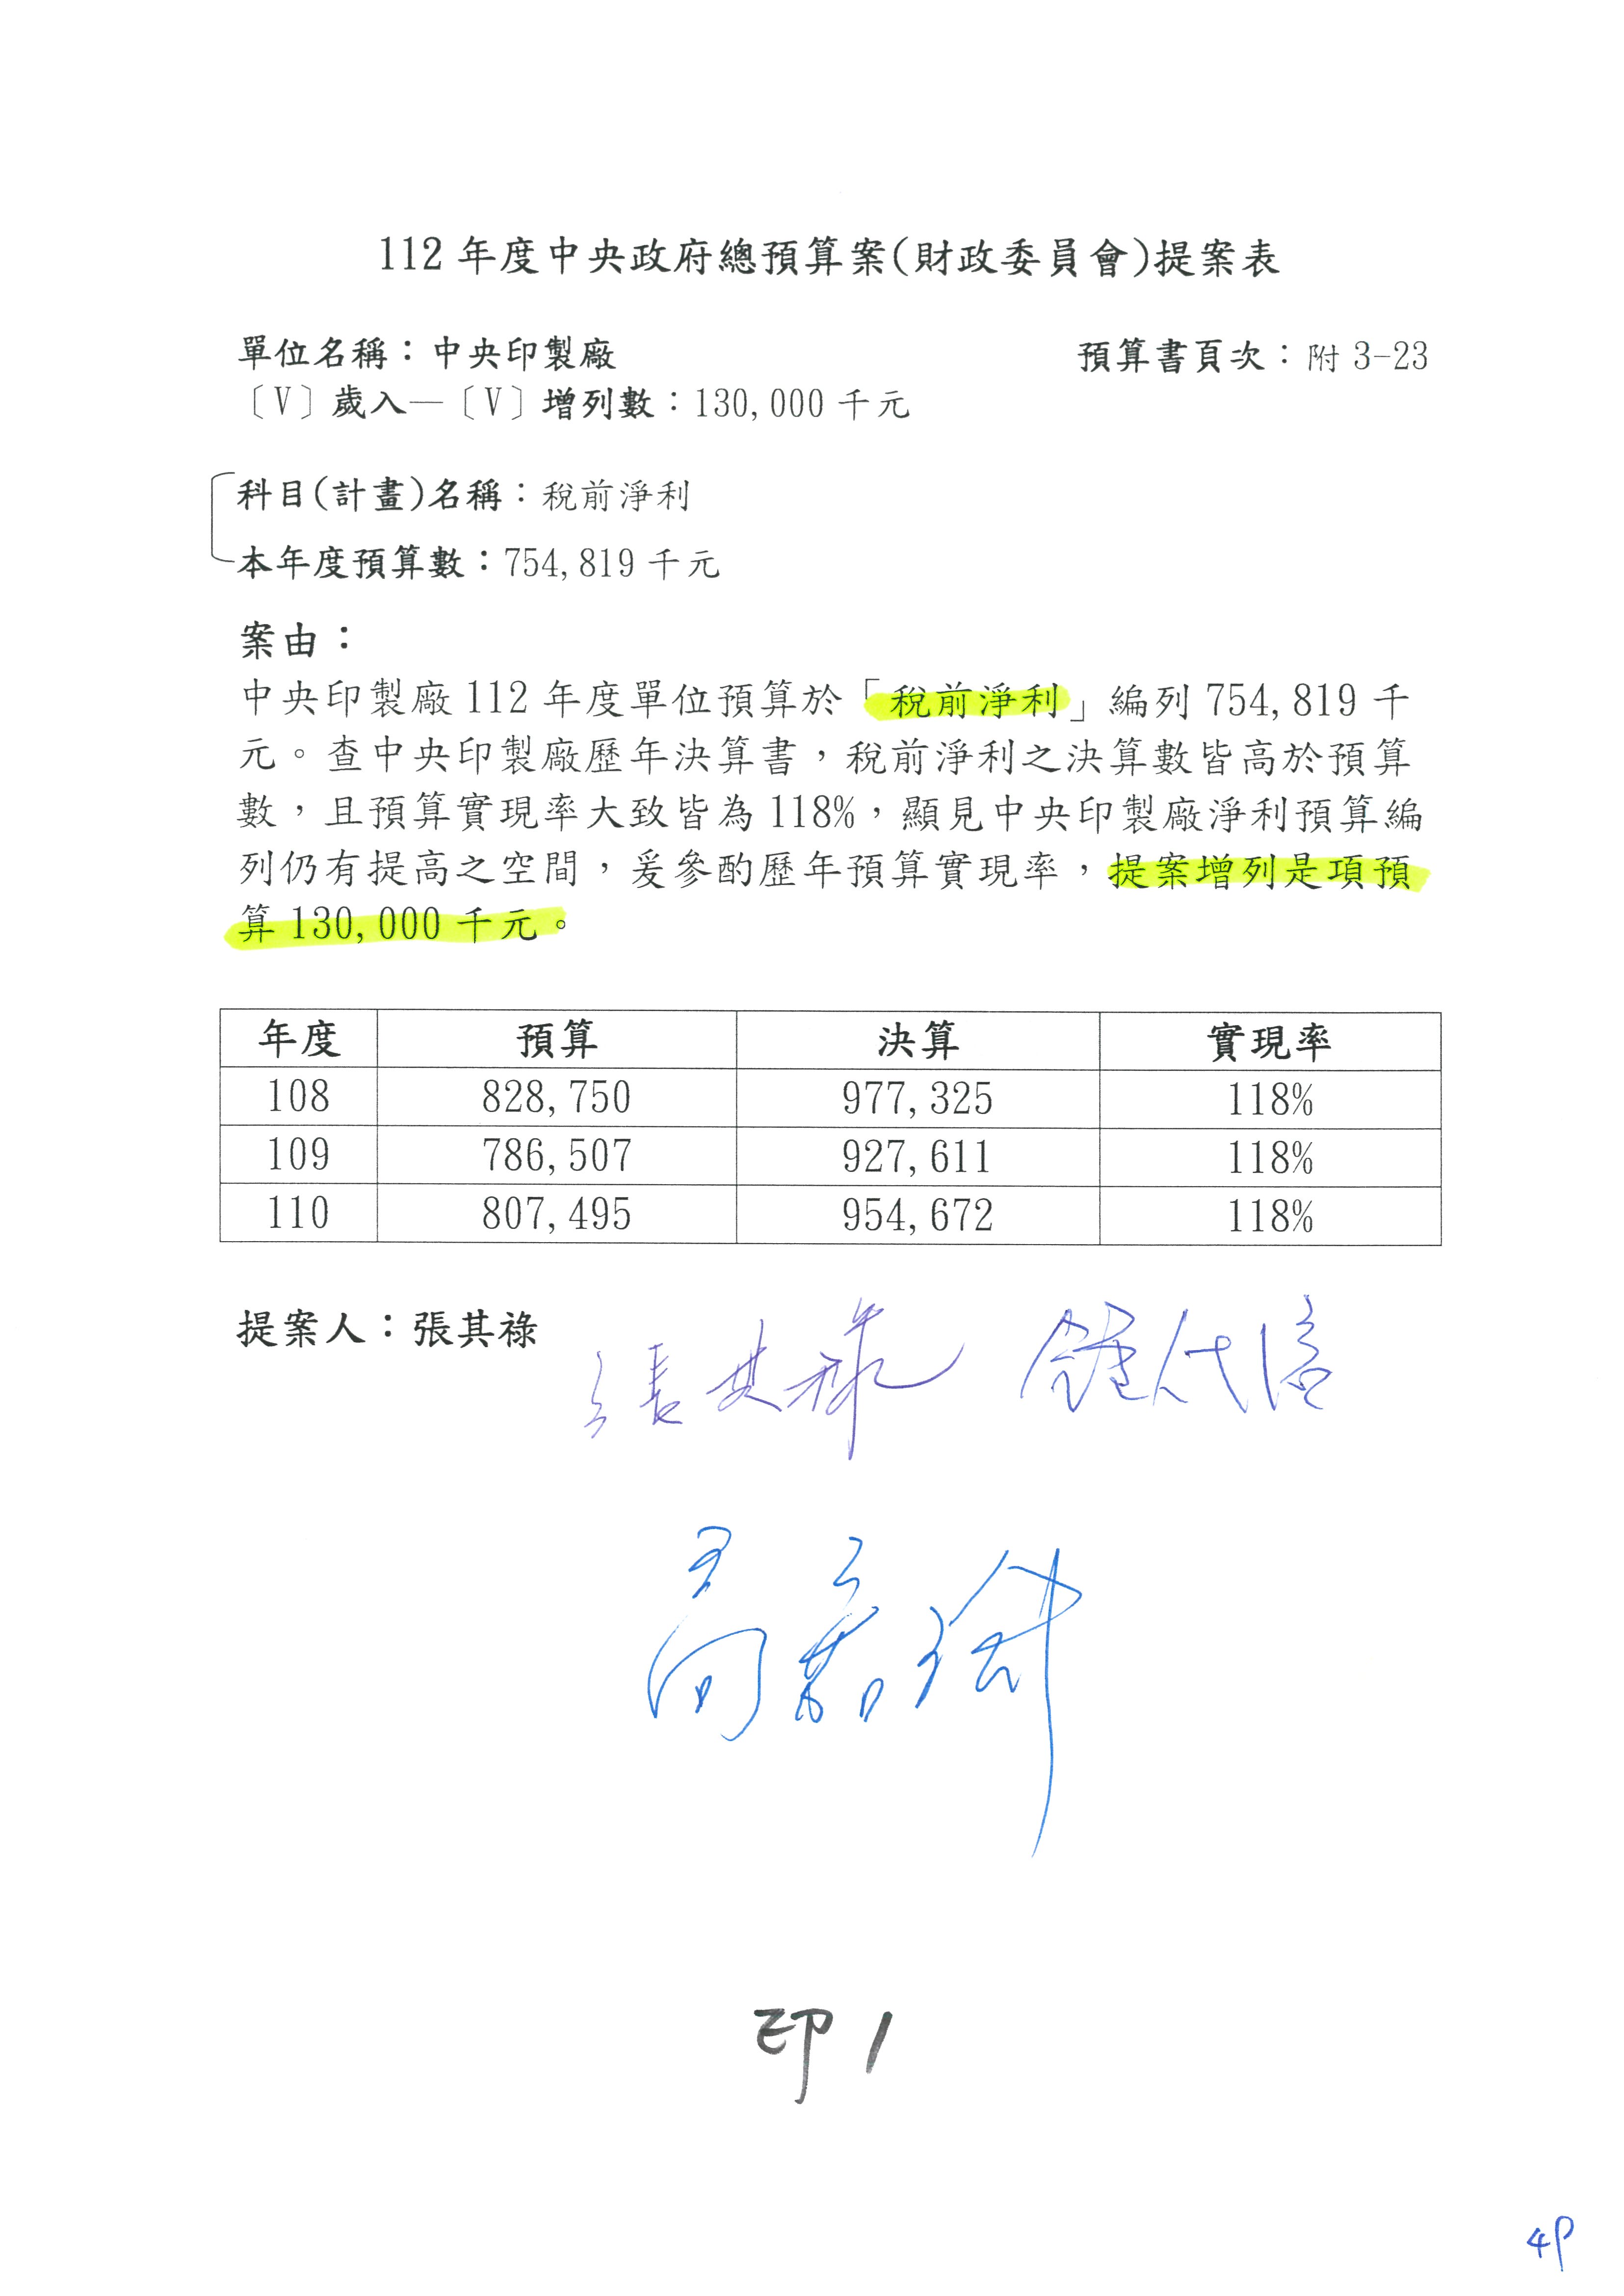 112年度中央政府總預算案(財政委員會)提案表
單位名稱：中央印製廠 預算書頁次：附 3-23
〔V〕歲入—〔V〕增列數：130,000千元
科目(計畫)名稱：稅前淨利
本年度預算數：754,819千元
案由：
中央印製廠112年度單位預算於「稅前淨利」編列754,819千
元。查中央印製廠歷年決算書，稅前淨利之決算數皆高於預算
數，且預算實現率大致皆為118%，顯見中央印製廠淨利預算編
列仍有提高之空間，爰參酌歷年預算實現率，提案增列是項預
算130,000千元。
年度 預算 決算 實現率
108 828,750 977,325 118%
109 786,507 927,611 118%
110 807,495 954,672 118%
提案人：張其祿
張其祿
高嘉瑜
印1
4P